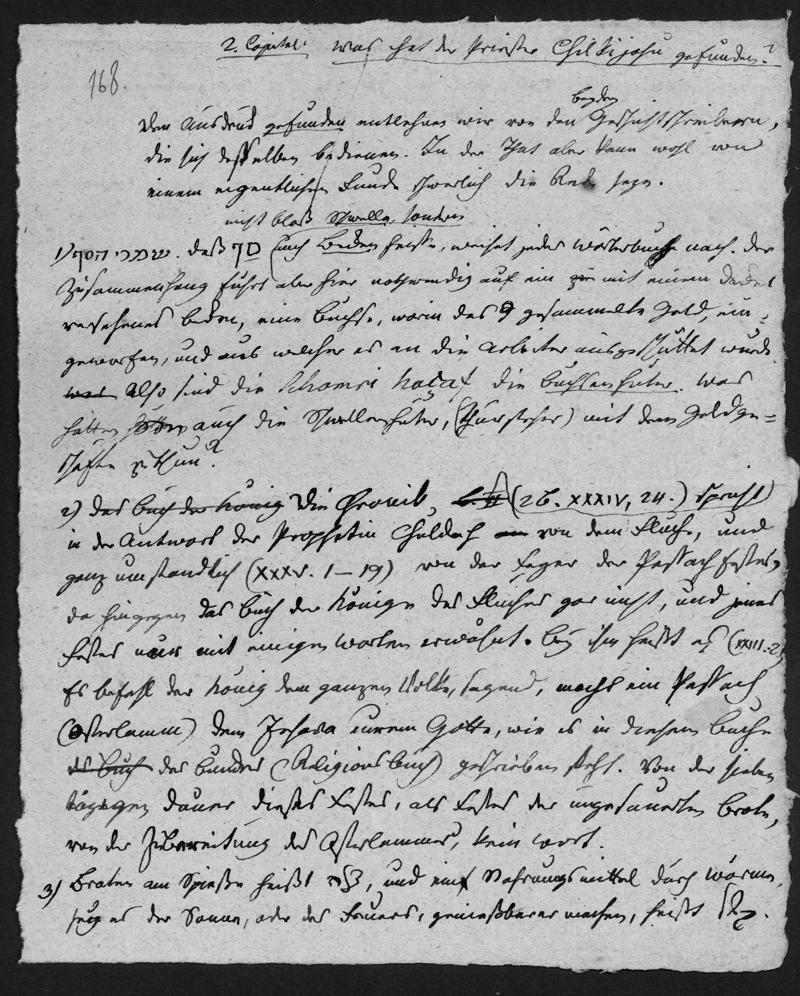 2. Capitel. was hat der Priester Chilkijahu gefunden?
168.
beyden
Den Ausdruck gefunden entlehnen wir von den Geschichtschreibern,
die sich desselben bedienen. In der That aber kann wohl von
einem eigentlichen Funde schwerlich die Rede seyn.
nicht bloß Schwelle, sondern
1) שמרי הסף. daß סף auch Becken heiße, weiset jedes Wörterbuch nach. der
Zusammenhang führt aber hier nothwendig auf ein mit einem Deckel
versehenes Becken, eine Büchse, worin das gesammelte Geld, ein-
geworfen, und aus welcher es an die Arbeiter ausgeschüttet wurde.
was Also sind die Schomre hasaf die Büchsenhüter. Was
hätten auch die Schwellenhüter, (Thürsteher) mit dem Geldge-
schäfte zu thun?
2) das Buch der König Die Chronik, (2B. XXXIV, 24.) spricht
in der Antwort der Prophetin Chuldah von dem Fluche, und
ganz umständlich (XXXV. 1-19) von der Feyer der Paßachfestes,
da hingegen das Buch der Könige des Fluches gar nicht, und jenes
Festes nur mit einigen Worten erwähnt. Bey ihm heißt es (XXIII. 21
Es befahl der König dem ganzen Volke, sagend, macht ein Paßach
(Osterlamm) dem Jehova eurem Gotte, wie es in diesem Buche
des Buch des Bundes (Religionsbuch) geschrieben steht. Von der sieben
tägigen Dauer dieses Festes, als Festes der ungesäuerten Brote,
von der Zubereitung des Osterlammes, kein Wort.
3) Braten am Spieße heißt צלה, und ein Nahrungsmittel durch Wärme,
sey es der Sonne, oder des Feuers, genießbarer machen, heißt בשל.